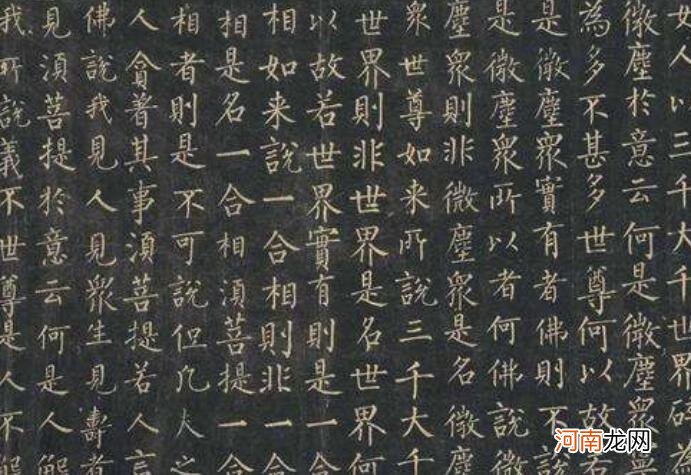 女人以三千大千世界碎為
微塵於意云何是微塵衆
為多不甚多世尊何以故
是微塵衆實有者佛則不說
是微塵衆所以者何佛說微
塵衆則非微塵衆是名微塵
衆世尊如来所說三千大千
世界則非世界是名世界何
以故若世界實有則是一合
相如来說一合相則非一合
相是名一合相須菩提一合
相者則是不可說但凡夫之
人貪著其事須菩提若人言
佛說我見人見衆生見壽者
見須菩提於意云何是人解
我所說義不世尊是人不解
河南龙网